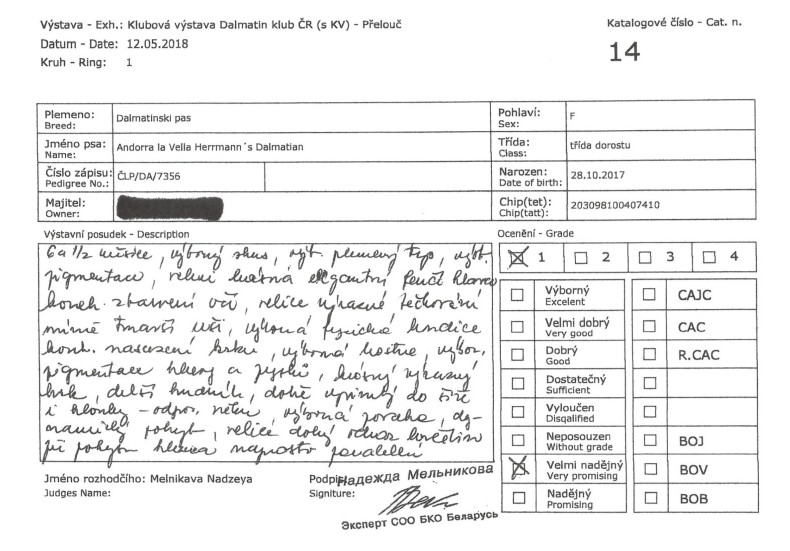 Výstava - Exh.: Klubová výstava Dalmatin klub ČR (s KV) - Přelouč
Datum - Date: 12.05.2018
Kruh - Ring: 1
Katalogové číslo - Cat. n.
14
Plemeno:
Breed:
Dalmatinski pas
Pohlaví:
Sex:
F
Jméno psa:
Name:
Andorra la Vella Herrmann´s Dalmatian
Třída:
Class:
třída dorostu
Číslo zápisu:
Pedigree No.:
ČLP/DA/7356
Narozen:
Date of birth:
28.10.2017
Majitel:
Owner:
Chip(tet):
Chip(tatt):
203098100407410
Výstavní posudek - Description
6 a 1/2 měsíce, výborný skus, výb. plemenný typ, výb.
pigmentace, velmi krásná elegantní fenčí hlava
korek. zbarvení očí, velice výrazné tečkování
mírně tmavší uši, výborná fyzická kondice
nasazení krku, výborná kostra, výbor.
pigmentace hlavy a pysků, krásný výrazný
krk, delší hrudník, dobře do šíře
i hloubky - odpov. věku, výborná povaha, dy-
namický pohyb, velice dobrý
při pohybu naprosto paralelní
Ocenění - Grade
1
2
3
4
Výborný
Excelent
CAJC
Velmi dobrý
Very good
CAC
Dobrý
Good
R.CAC
Dostatečný
Sufficient
Vyloučen
Disqalified
Neposouzen
Without grade
BOJ
Velmi nadějný
Very promising
BOV
Nadějný
Promising
BOB
Jméno rozhodčího: Melnikava Nadzeya
Judges Name:
Podpis:
Signiture:
Надежда Мельникова
Эксперт СОО БКО Беларусь